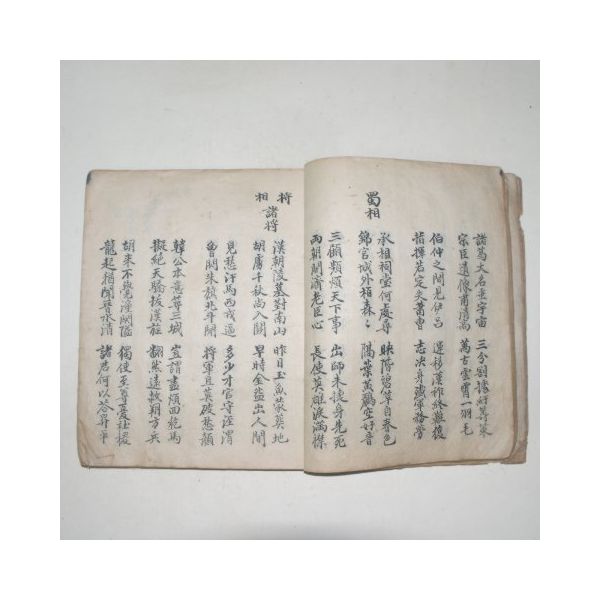 諸葛大名垂宇宙 三分割據紆籌策
宗臣遺像肅清高 萬古雲霄一羽毛
伯仲之間見伊呂 運移漢祚終難復
指揮若定失蕭曹 志決身殲軍務勞
蜀相
承相祠堂何處尋 映階碧草自春色
錦官城外栢森〻 隔葉黃鸝空好音
三顧頻煩天下事 出師未捷身先死
兩朝開濟老臣心 長使英雄淚滿襟
將相
諸將
漢朝陵墓對南山 昨日玉魚蒙葬地
胡虜千秋尚入關 早時金盌出人間
見愁汗馬西戎逼 多少才官守涇渭
曾閃朱旗北斗閑 將軍且莫破愁顔
韓公本意築三城 豈謂盡煩回紇馬
擬絶天驕拔漢旌 翻然遠救朔方兵
胡來不覺潼關隘 獨使至尊憂社稷
龍起猶聞晉水清 諸君何以答昇平